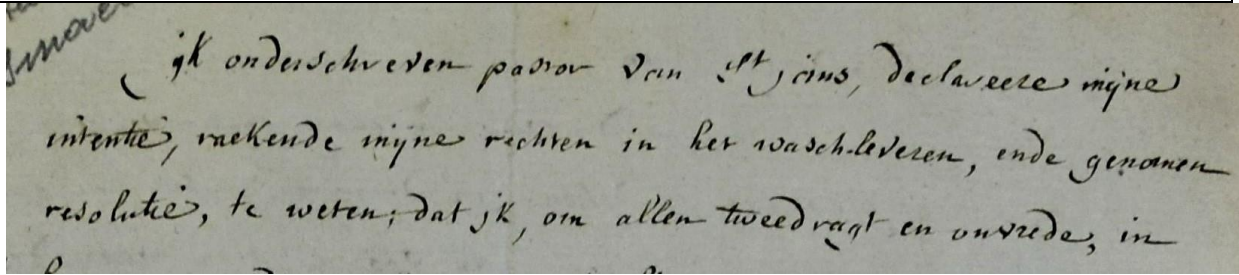 jk onderschreven pastor van St jans, declareere mijne
intentie, raekende mijne rechten in het wasch-leveren, ende genomen
resolutie, te weten: dat jk, om allen tweedragt en onvrede, in